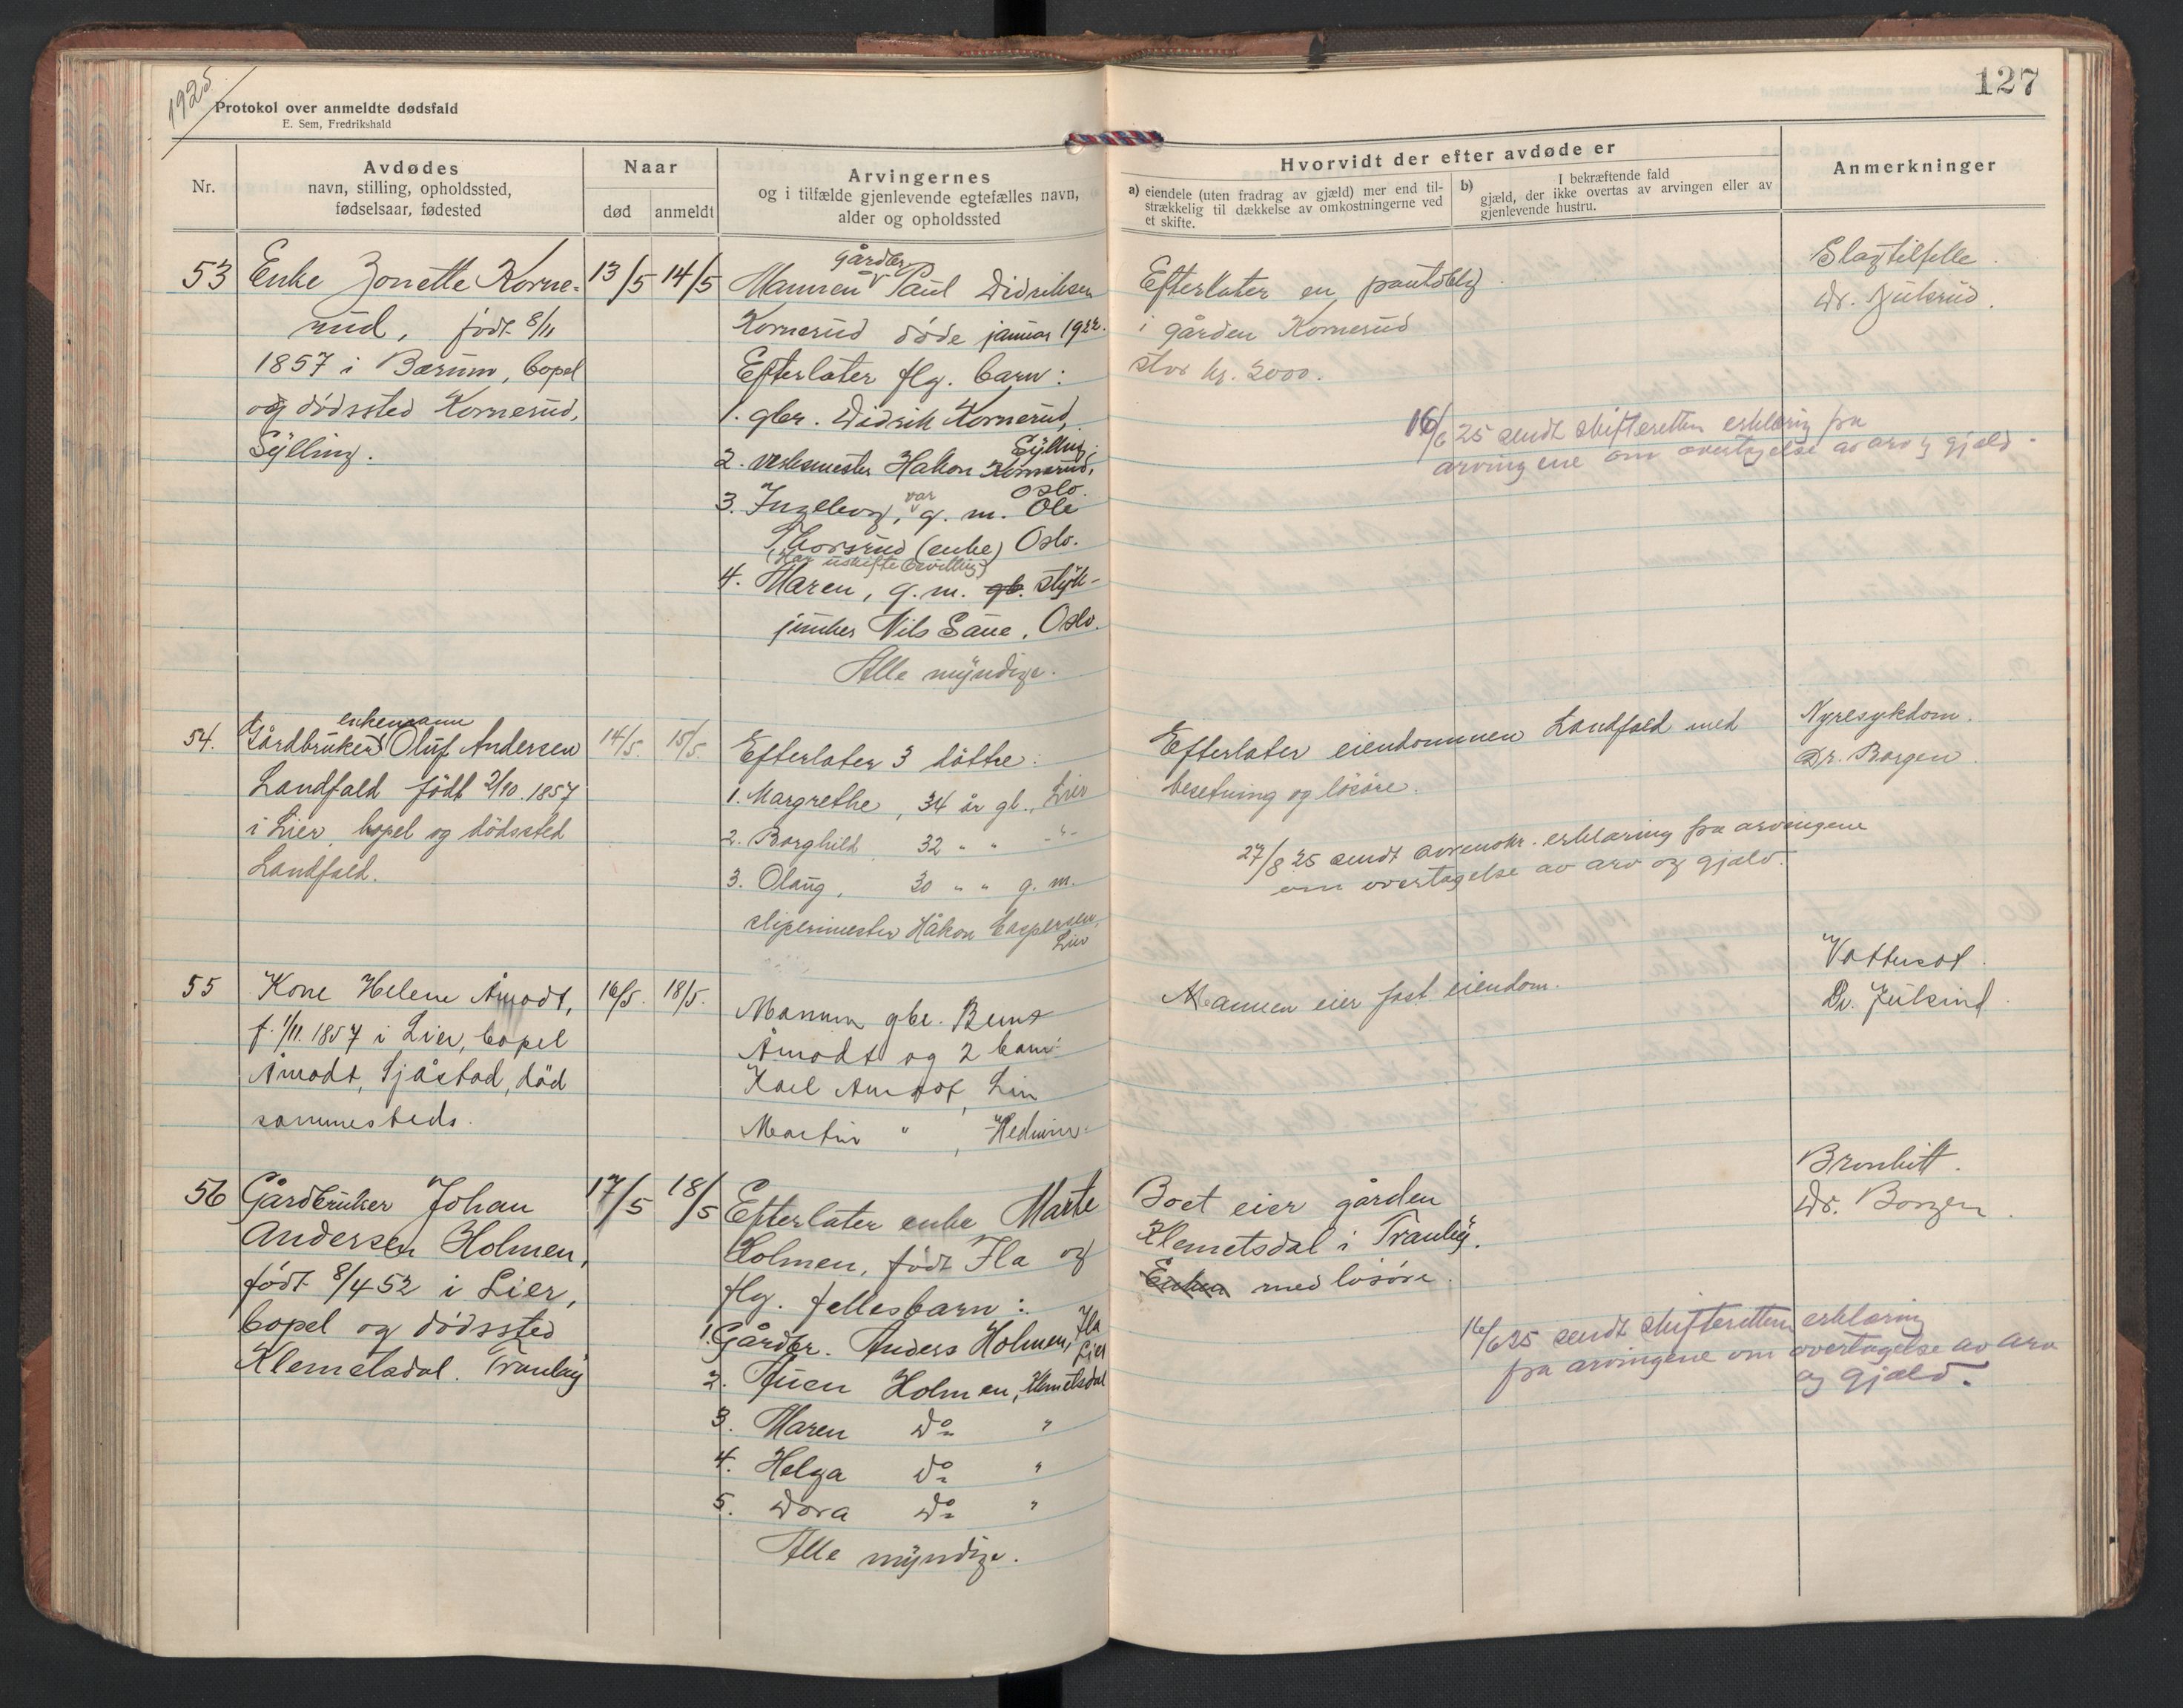 1925
Protokol over anmeldte dødsfald
E. Sem, Fredrikshald
127
Nr.
Avdødes
navn, stilling, opholdssted,
fødselsaar, fødested
Naar
død anmeldt
Arvingernes
og i tilfælde gjenlevende egtefælles navn,
alder og opholdssted
Hvorvidt der efter avdøde er
a) eiendele (uten fradrag av gjæld) mer end til-
strækkelig til dækkelse av omkostningerne ved
et skifte.
b) I bekræftende fald
gjæld, der ikke overtas av arvingen eller av
gjenlevende hustru.
Anmerkninger
53 Enke Zonette Korne-
rud, født 8/11
1857 i Bærum, bopel
og dødssted Kornerud,
Sylling.
13/5 14/5
gårdbr.
Mannen Paul Didriksen
Kornerud døde januar 1922.
Efterlater flg. barn:
1. gbr. Didrik Kornerud,
Sylling.
2. verksmester Hakon Kornerud,
Oslo.
3. Ingeborg, var g. m. Ole
Thorsrud (enke) Oslo.
(Har uskiftebevilling)
4. Maren, g. m. gb. styk-
junker Nils Saue, Oslo.
Alle myndige.
Efterlater en pantobl
i gården Kornerud
stor kr. 2000.
16/6 25 sendt skifteretten erklæring fra
arvingene om overtagelse av arv og gjæld.
Slagtilfelle.
Dr. Julsrud.
54. enkemann
Gårdbruker Oluf Andersen
Landfald født 2/10.1857
i Lier, bopel og dødssted
Landfald.
14/5. 15/5.
Efterlater 3 døttre:
1. Margrethe, 34 år gl., Lier
2. Borghild 32 " " -"-
3. Olaug, 30 " " g. m.
sliperimester Håkon Caspersen,
Lier
Efterlater eiendommen Landfald med
besetning og løsøre.
27/8 25 sendt sorenskr. erklæring fra arvingene
om overtagelse av arv og gjæld.
Nyresykdom.
Dr. Borgen.
55 Kone Helene Åmodt,
f. 1/11. 1857 i Lier, bopel
Åmodt, Sjåstad, død
sammesteds.
16/5. 18/5.
Mannen gbr. Bernt
Åmodt og 2 barn:
Karl Amodt, Lier
Martin " , Hedrum.
Mannen eier fast eiendom.
Vattersot.
Dr. Julsrud.
56 Gårdbruker Johan
Andersen Holmen,
født 8/4 52 i Lier,
bopel og dødssted
Klemetsdal. Tranby
17/5 18/5
Efterlater enke Marte
Holmen, født Fla og
flg. fellesbarn:
1. Gårdbr. Anders Holmen, Fla
Lier
2. Auen Holmen, Klemetsdal
3. Maren do "
4. Helga do "
5. Dora do "
Alle myndige.
Boet eier gården
Klemetsdal i Tranby.
Enken med løsøre.
16/6 25 sendt skifteretten erklæring
fra arvingene om overtagelse av arv
og gjæld.
Bronkitt.
Dr. Borgen.